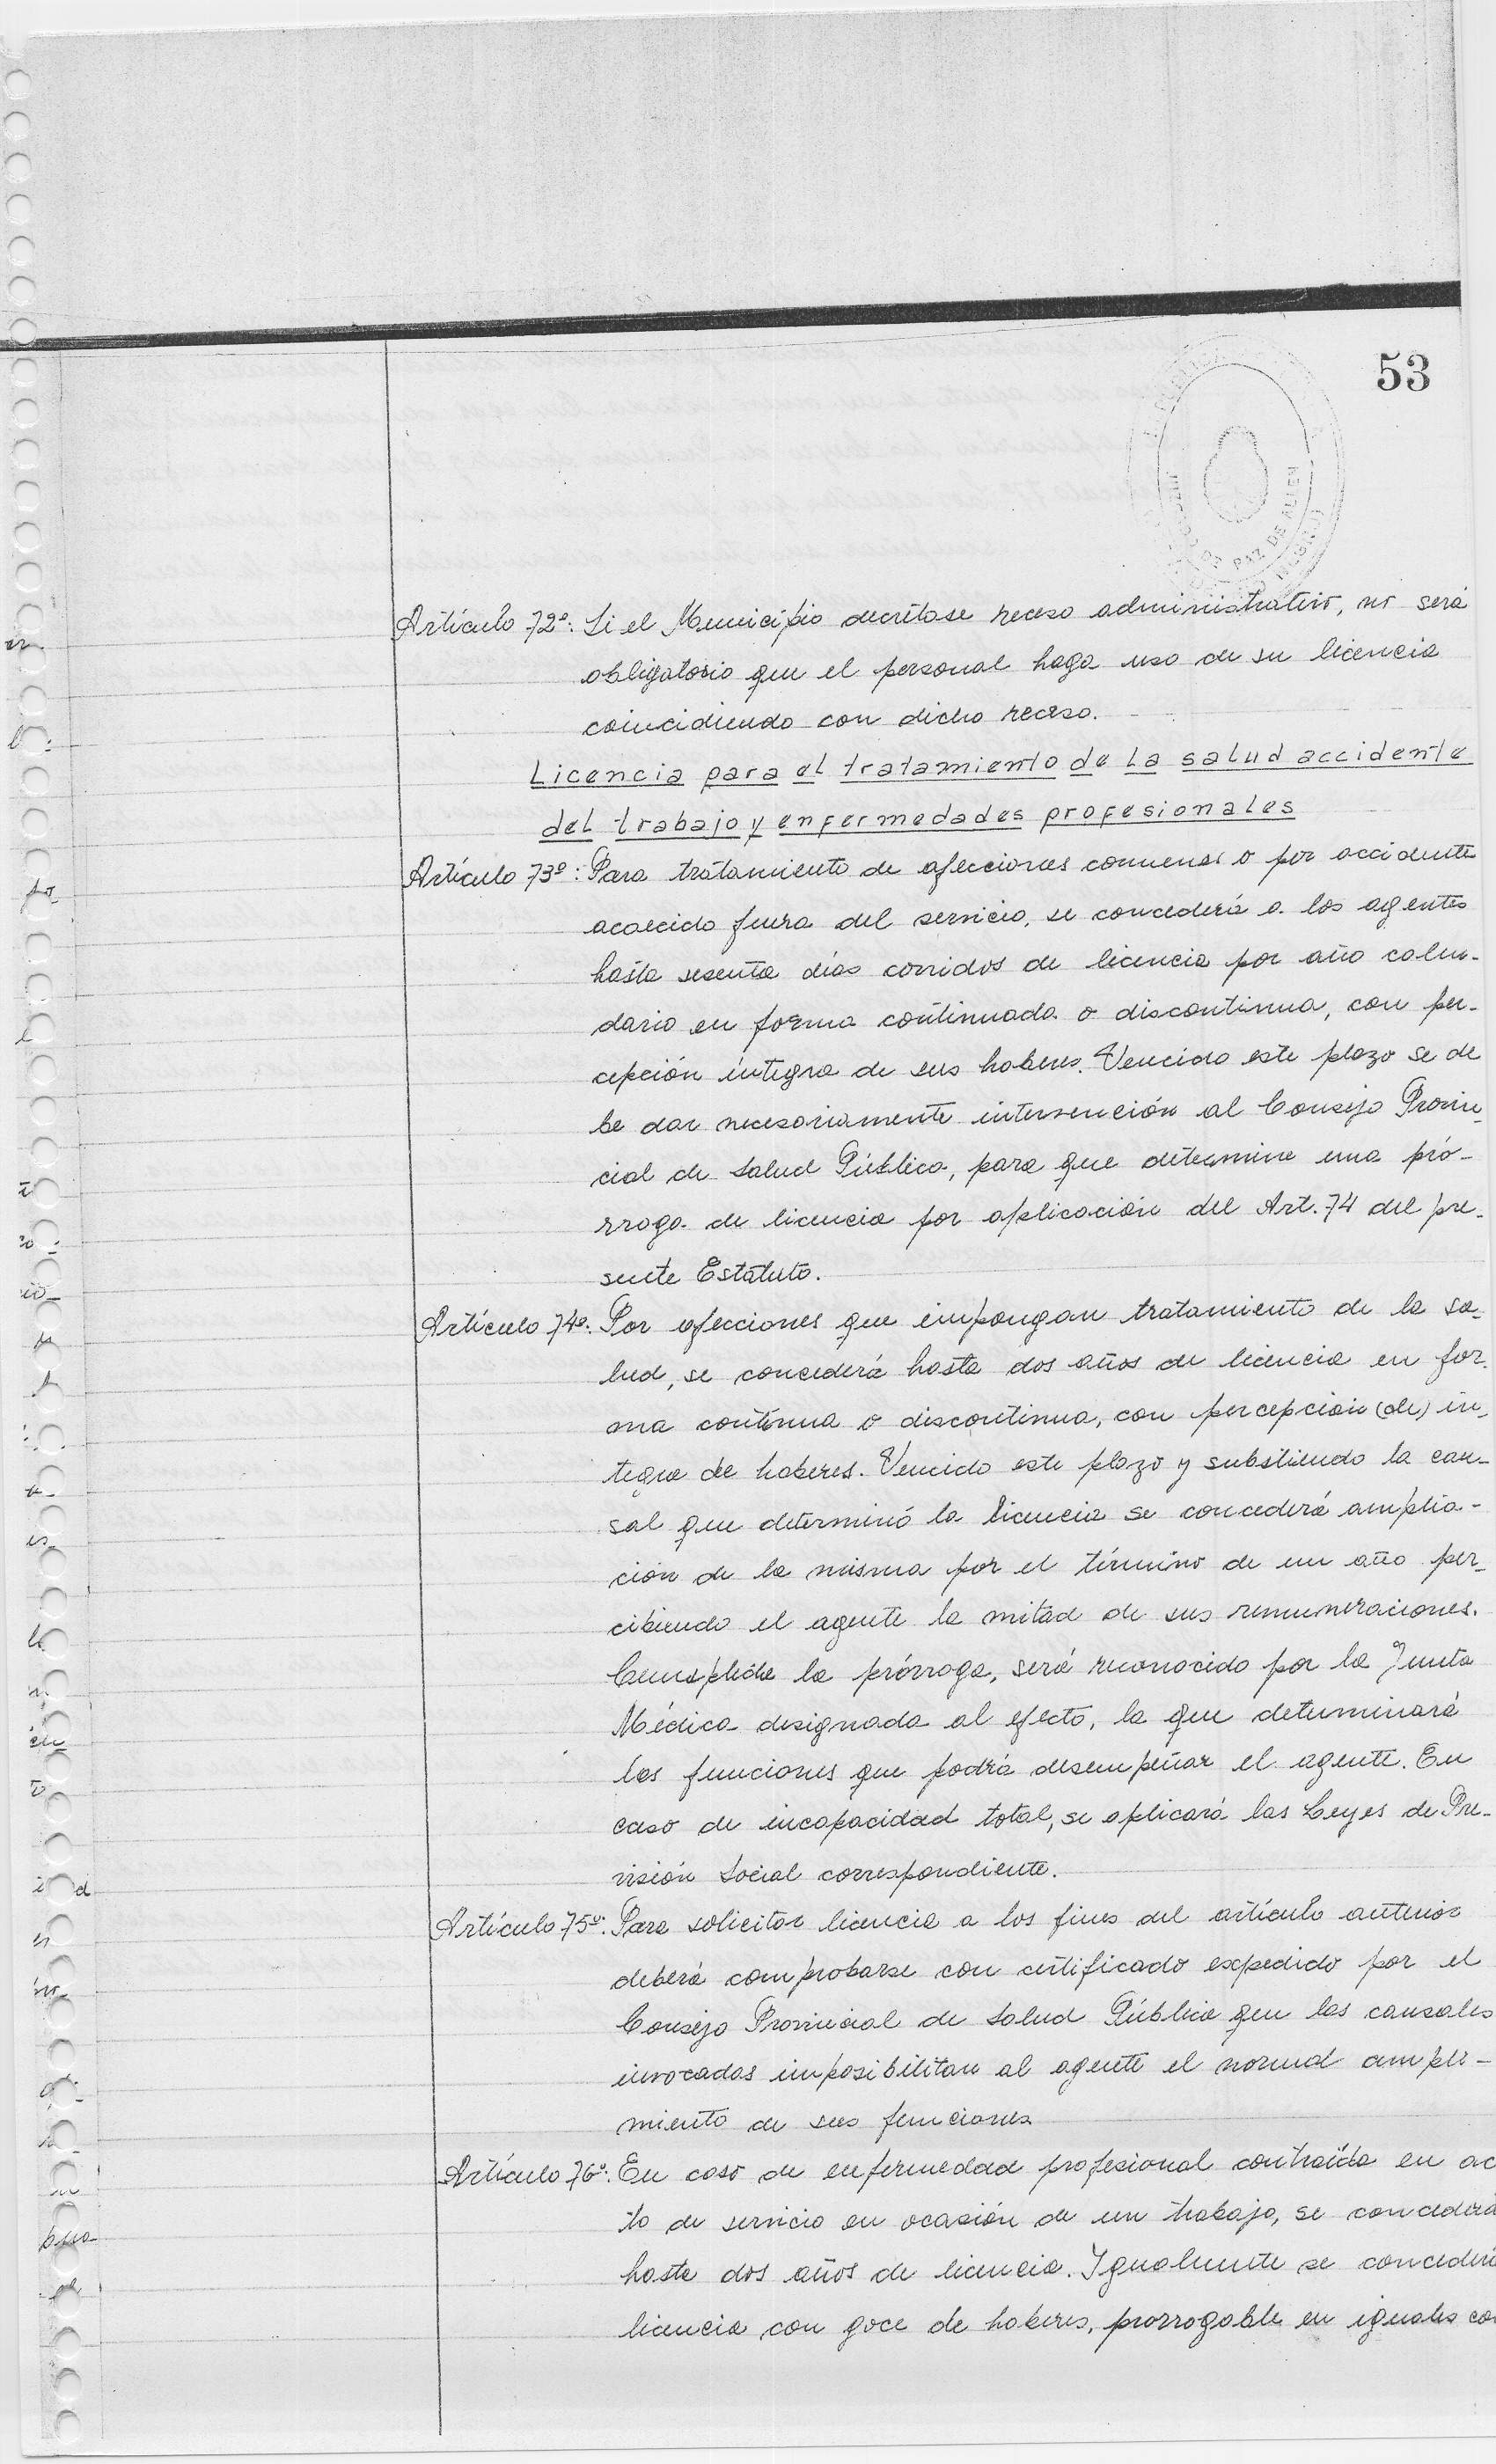 53
PAZ DE ALLEN
Artículo 72º: Si el Municipio decretase receso administrativo, no será
obligatorio que el personal haga uso de su licencia
coincidiendo con dicho receso.
Licencia para el tratamiento de la salud accidente
del trabajo y enfermedades profesionales
Artículo 73º: Para tratamiento de afecciones comunes o por accidente
acaecido fuera del servicio, se concederá a los agentes
hasta sesenta días corridos de licencia por año calen-
dario en forma continuada o discontinua, con per-
cepción íntegra de sus haberes. Vencido este plazo se de
be dar necesariamente intervención al Consejo Provin-
cial de Salud Pública, para que determine una pró-
rroga de licencia por aplicación del Art. 74 del pre-
sente Estatuto.
Artículo 74º: Por afecciones que impongan tratamiento de la sa-
lud, se concederá hasta dos años de licencia en for-
ma contínua o discontinua, con percepción (de) ín-
tegra de haberes. Vencido este plazo y subsitiendo la cau-
sal que determinó la licencia se concederá amplia-
ción de la misma por el término de un año per-
cibiendo el agente la mitad de sus remuneraciones.
Cumplida la prórroga, será reconocido por la Junta
Médica designada al efecto, la que determinará
las funciones que podrá desempeñar el agente. En
caso de incapacidad total, se aplicará las Leyes de Pre-
visión Social correspondiente.
Artículo 75º: Para solicitar licencia a los fines del artículo anterior
deberá comprobarse con certificado expedido por el
Consejo Provincial de Salud Pública que las causales
invocadas imposibilitan al agente el normal cumpli-
miento de sus funciones
Artículo 76º: En caso de enfermedad profesional contraída en ac
to de servicio en ocasión de un trabajo, se concederá
hasta dos años de licencia. Igualmente se concederá
licencia con goce de haberes, prorrogable en iguales con